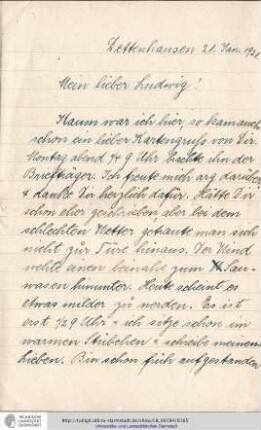 Lettenhausen 21. Jan. 1921
Mein lieber Ludwig!
Kaum war ich hier, so kam auch
schon ein lieber Kartengruss von Dir.
Montag abend 3/4 9 Uhr brachte ihn der
Briefträger. Ich freute mich arg darüber
& danke Dir herzlich dafür. Hätte Dir
schon eher geschrieben aber bei dem
schlechten Wetter getraute man sich
nicht zur Türe hinaus. Der Wind
wehte einen beinahe zum
hinunter. Heute scheint es
etwas milder zu werden. Es ist
erst 1/2 9 Uhr & ich sitze schon im
warmen Stübchen & schreibe meinem
Lieben. Bin schon früh aufgestanden
TECHNISCHE
UNIVERSITÄT
DARMSTADT
Universitäts- und Landesbibliothek Darmstadt